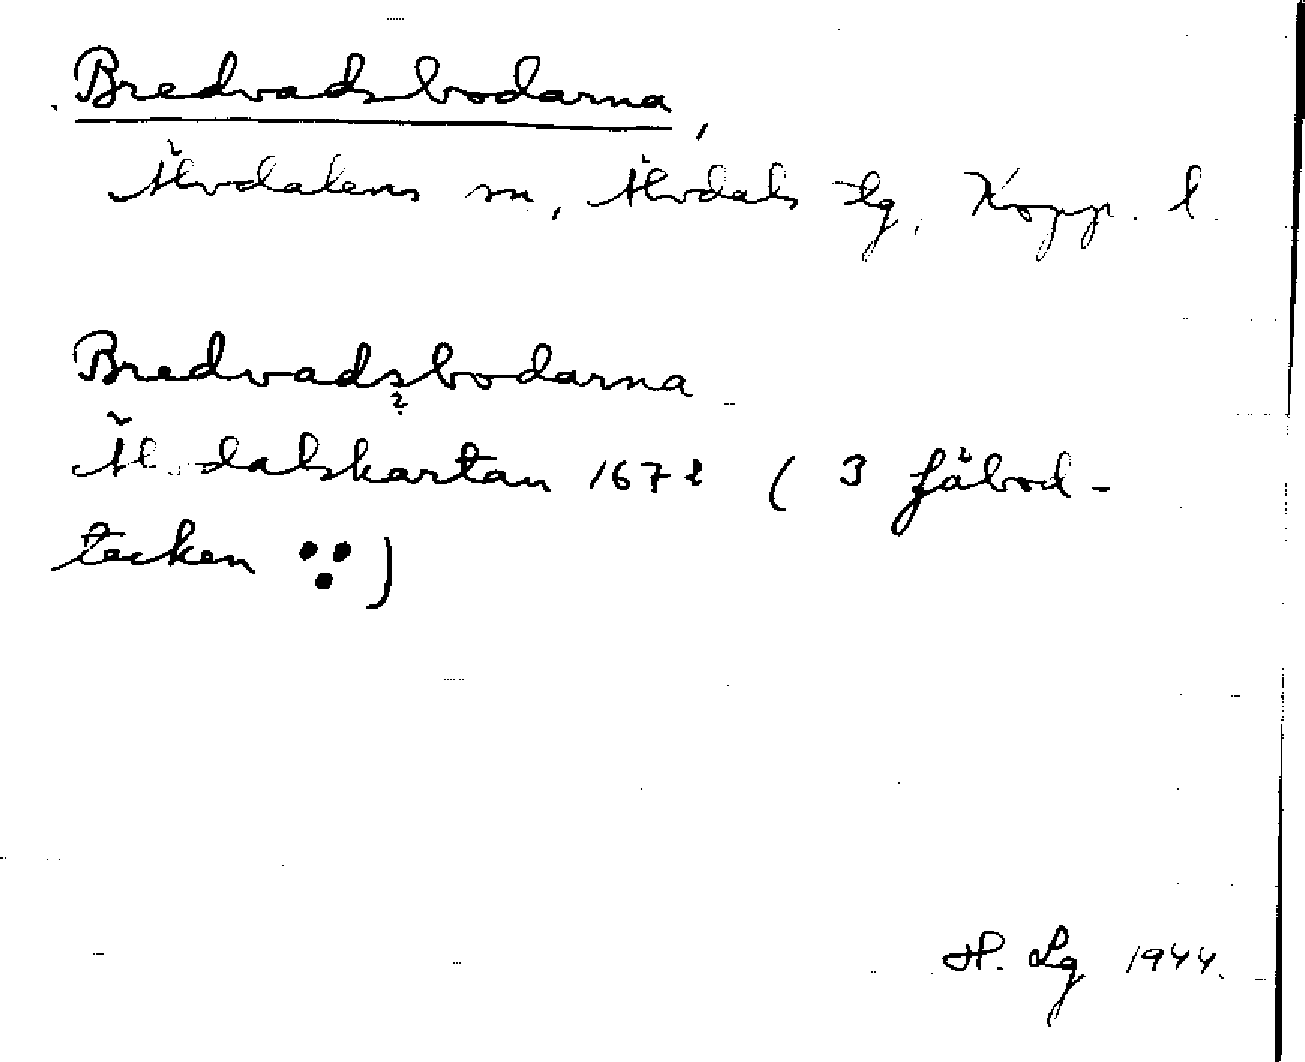 Bredvadsbodarna,
Älvdalens sn, Älvdals tg, Kopp. l.
Bredvadsbodarna
?
Älvdalskartan 1672 ( 3 fäbod-
tecken )
H. Lg 1944.